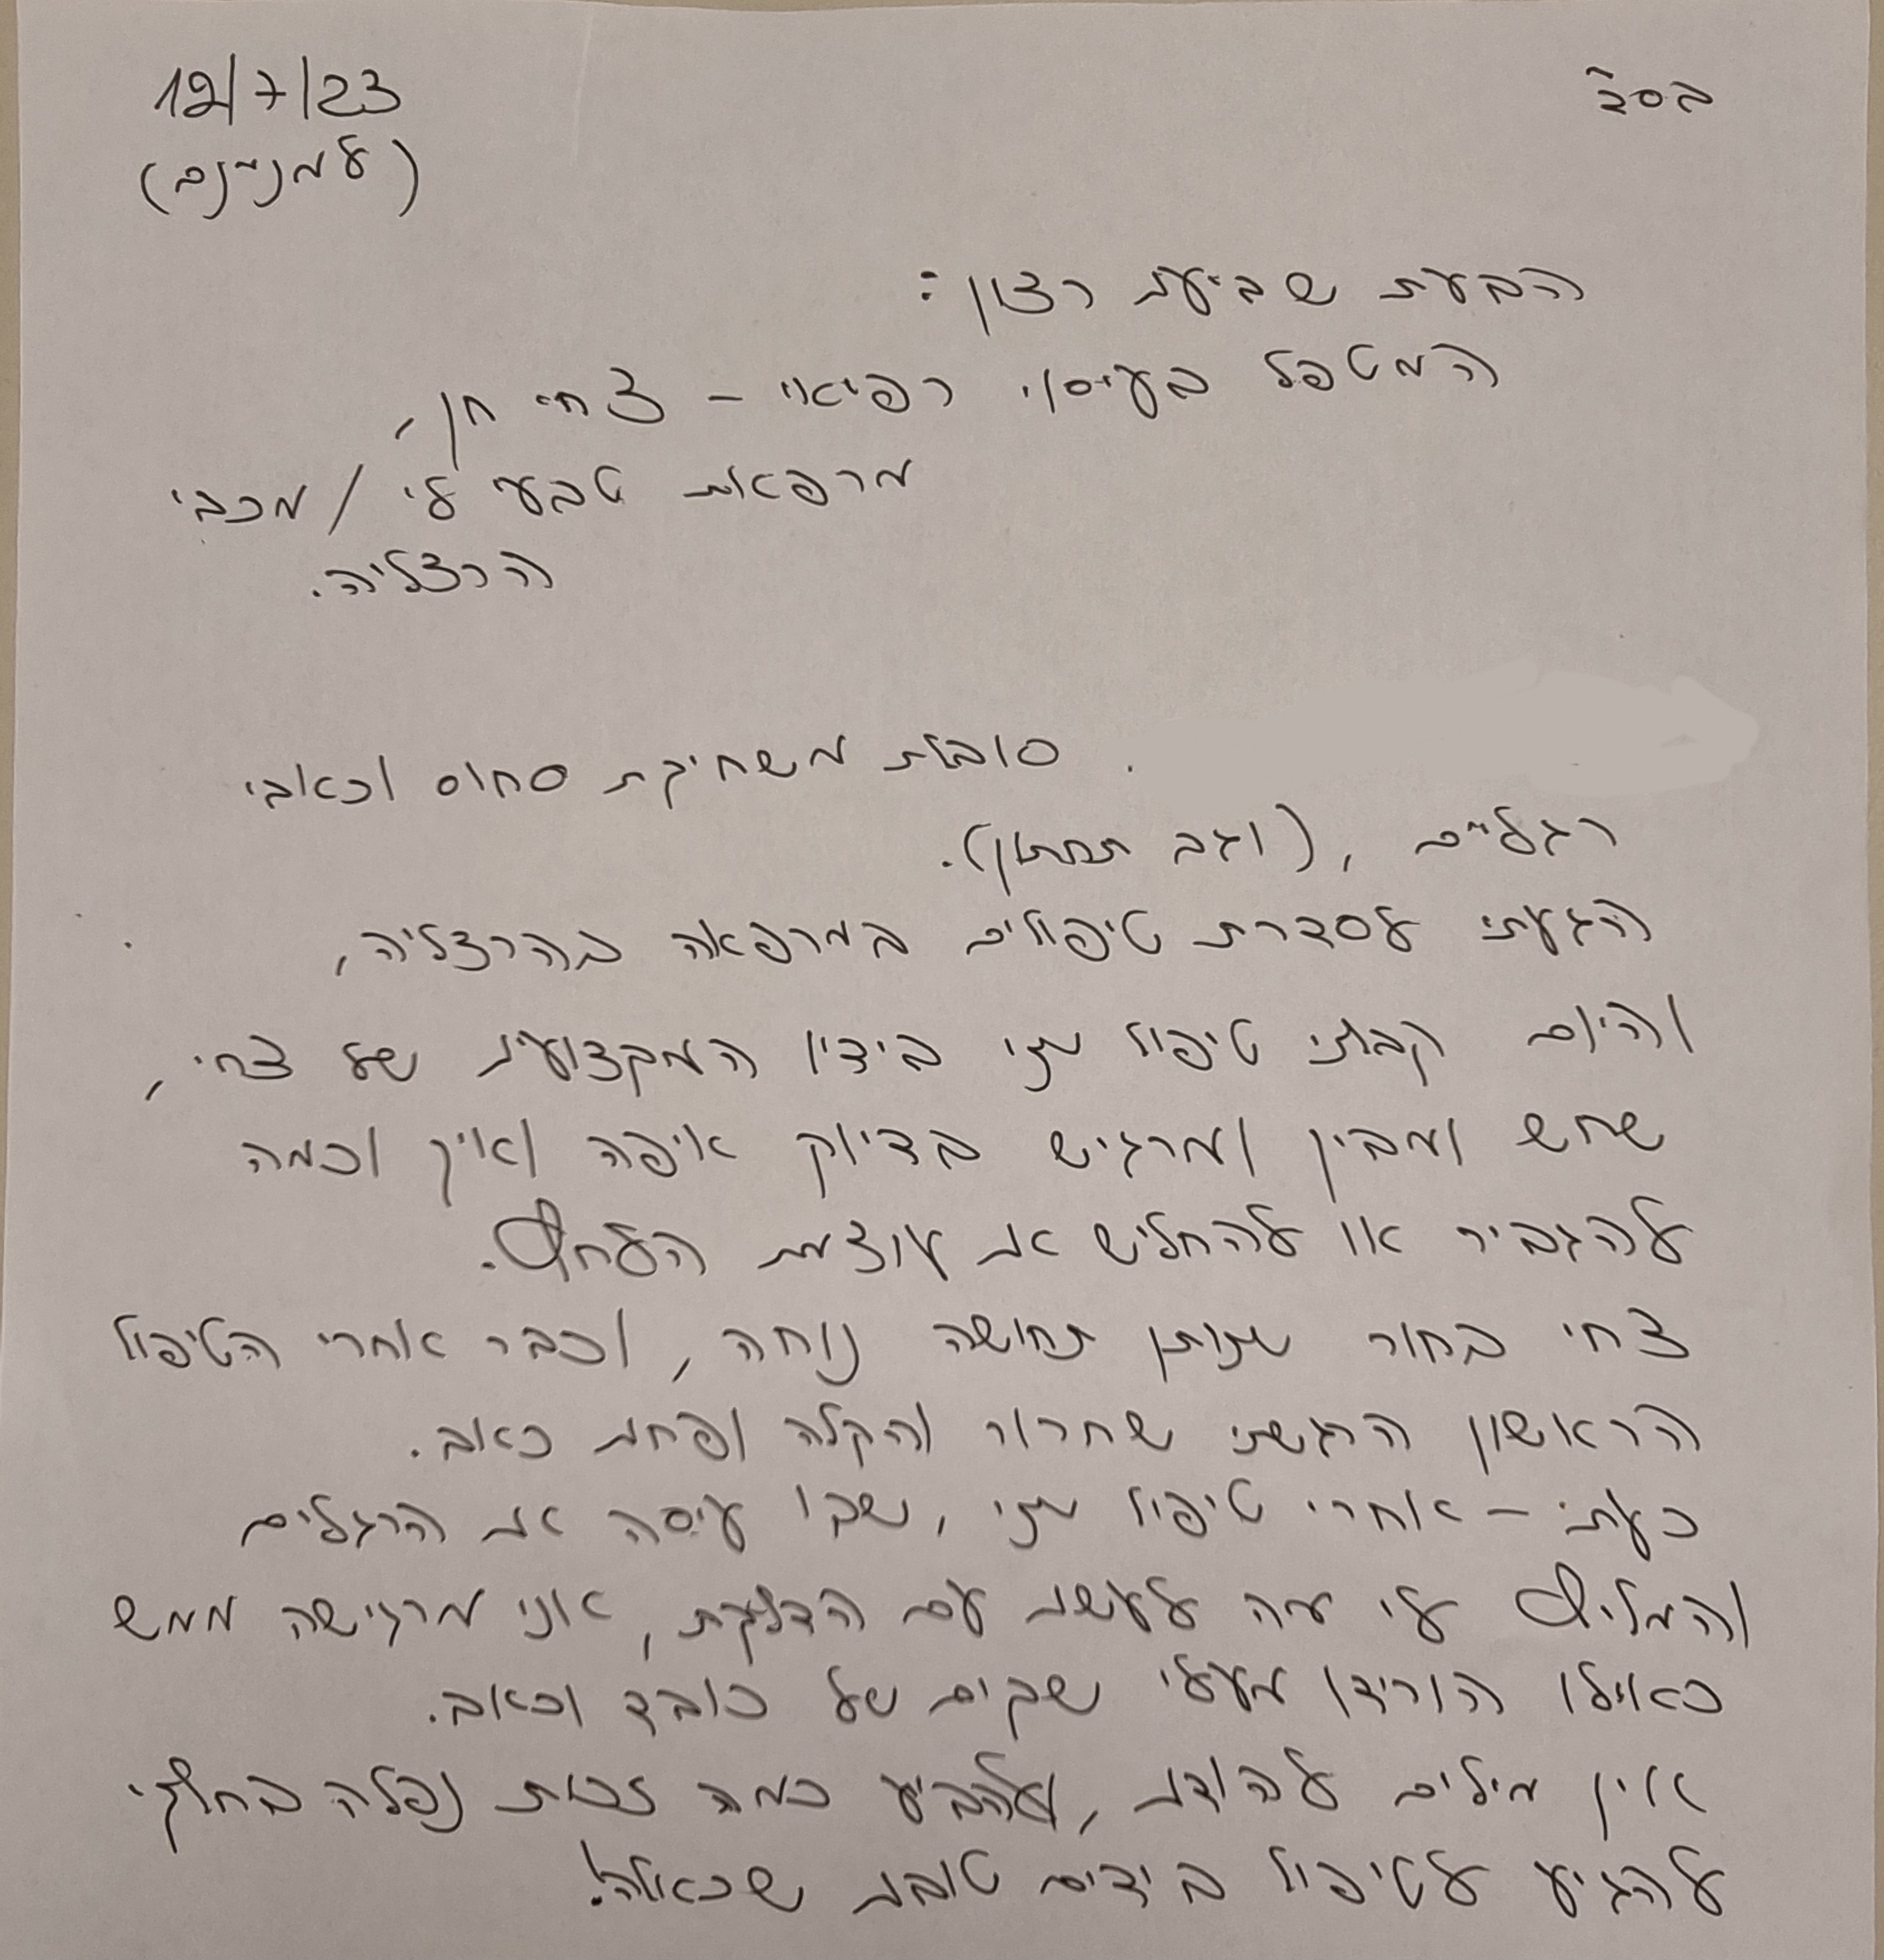 בס"ד
12/7/23
(למניינם)
הבעת שביעת רצון:
המטפל בעיסוי רפואי - צחי חן,
מרפאת טבעי לי / מכבי
הרצליה.
. סובלת משחיקת סחוס וכאבי
רגליים, (וגב תחתון).
הגעתי לסדרת טיפולים במרפאה בהרצליה,
והיום קבלתי טיפול שני בידיו המקצועיות של צחי,
שחש ומבין ומרגיש בדיוק איפה ואיך וכמה
להגביר או להחליש את עוצמת הלחץ.
צחי בחור שנותן תחושה נוחה, וכבר אחרי הטיפול
הראשון הרגשתי שחרור והקלה ופחות כאב.
כעת - אחרי טיפול שני, שבו עיסה את הרגליים
והמליץ לי מה לעשות עם הדלקת, אני מרגישה ממש
כאילו הורידו מעלי שקים של כובד וכאב.
אין מילים להודות, ולהביע כמה זכות נפלה בחלקי
להגיע לטיפול בידיים טובות שכאלה!